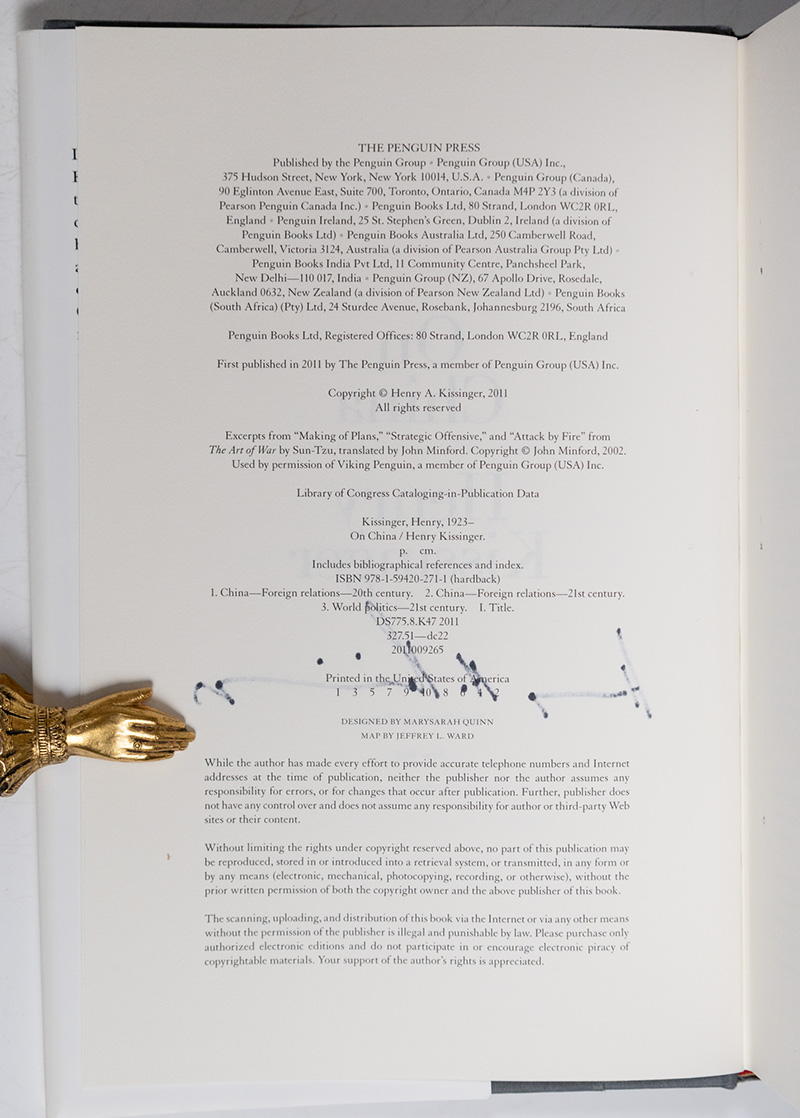 THE PENGUIN PRESS
Published by the Penguin Group • Penguin Group (USA) Inc.,
375 Hudson Street, New York, New York 10014, U.S.A. • Penguin Group (Canada),
90 Eglinton Avenue East, Suite 700, Toronto, Ontario, Canada M4P 2Y3 (a division of
Pearson Penguin Canada Inc.) • Penguin Books Ltd, 80 Strand, London WC2R 0RL,
England • Penguin Ireland, 25 St. Stephen's Green, Dublin 2, Ireland (a division of
Penguin Books Ltd) • Penguin Books Australia Ltd, 250 Camberwell Road,
Camberwell, Victoria 3124, Australia (a division of Pearson Australia Group Pty Ltd) •
Penguin Books India Pvt Ltd, 11 Community Centre, Panchsheel Park,
New Delhi—110 017, India • Penguin Group (NZ), 67 Apollo Drive, Rosedale,
Auckland 0632, New Zealand (a division of Pearson New Zealand Ltd) • Penguin Books
(South Africa) (Pty) Ltd, 24 Sturdee Avenue, Rosebank, Johannesburg 2196, South Africa
Penguin Books Ltd, Registered Offices: 80 Strand, London WC2R 0RL, England
First published in 2011 by The Penguin Press, a member of Penguin Group (USA) Inc.
Copyright © Henry A. Kissinger, 2011
All rights reserved
Excerpts from "Making of Plans," "Strategic Offensive," and "Attack by Fire" from
The Art of War by Sun-Tzu, translated by John Minford. Copyright © John Minford, 2002.
Used by permission of Viking Penguin, a member of Penguin Group (USA) Inc.
Library of Congress Cataloging-in-Publication Data
Kissinger, Henry, 1923–
On China / Henry Kissinger.
p. cm.
Includes bibliographical references and index.
ISBN 978-1-59420-271-1 (hardback)
1. China—Foreign relations—20th century. 2. China—Foreign relations—21st century.
3. World politics—21st century. I. Title.
DS775.8.K47 2011
327.51—dc22
2011009265
Printed in the United States of America
1 3 5 7 9 10 8 6 4 2
DESIGNED BY MARYSARAH QUINN
MAP BY JEFFREY L. WARD
While the author has made every effort to provide accurate telephone numbers and Internet
addresses at the time of publication, neither the publisher nor the author assumes any
responsibility for errors, or for changes that occur after publication. Further, publisher does
not have any control over and does not assume any responsibility for author or third-party Web
sites or their content.
Without limiting the rights under copyright reserved above, no part of this publication may
be reproduced, stored in or introduced into a retrieval system, or transmitted, in any form or
by any means (electronic, mechanical, photocopying, recording, or otherwise), without the
prior written permission of both the copyright owner and the above publisher of this book.
The scanning, uploading, and distribution of this book via the Internet or via any other means
without the permission of the publisher is illegal and punishable by law. Please purchase only
authorized electronic editions and do not participate in or encourage electronic piracy of
copyrightable materials. Your support of the author's rights is appreciated.